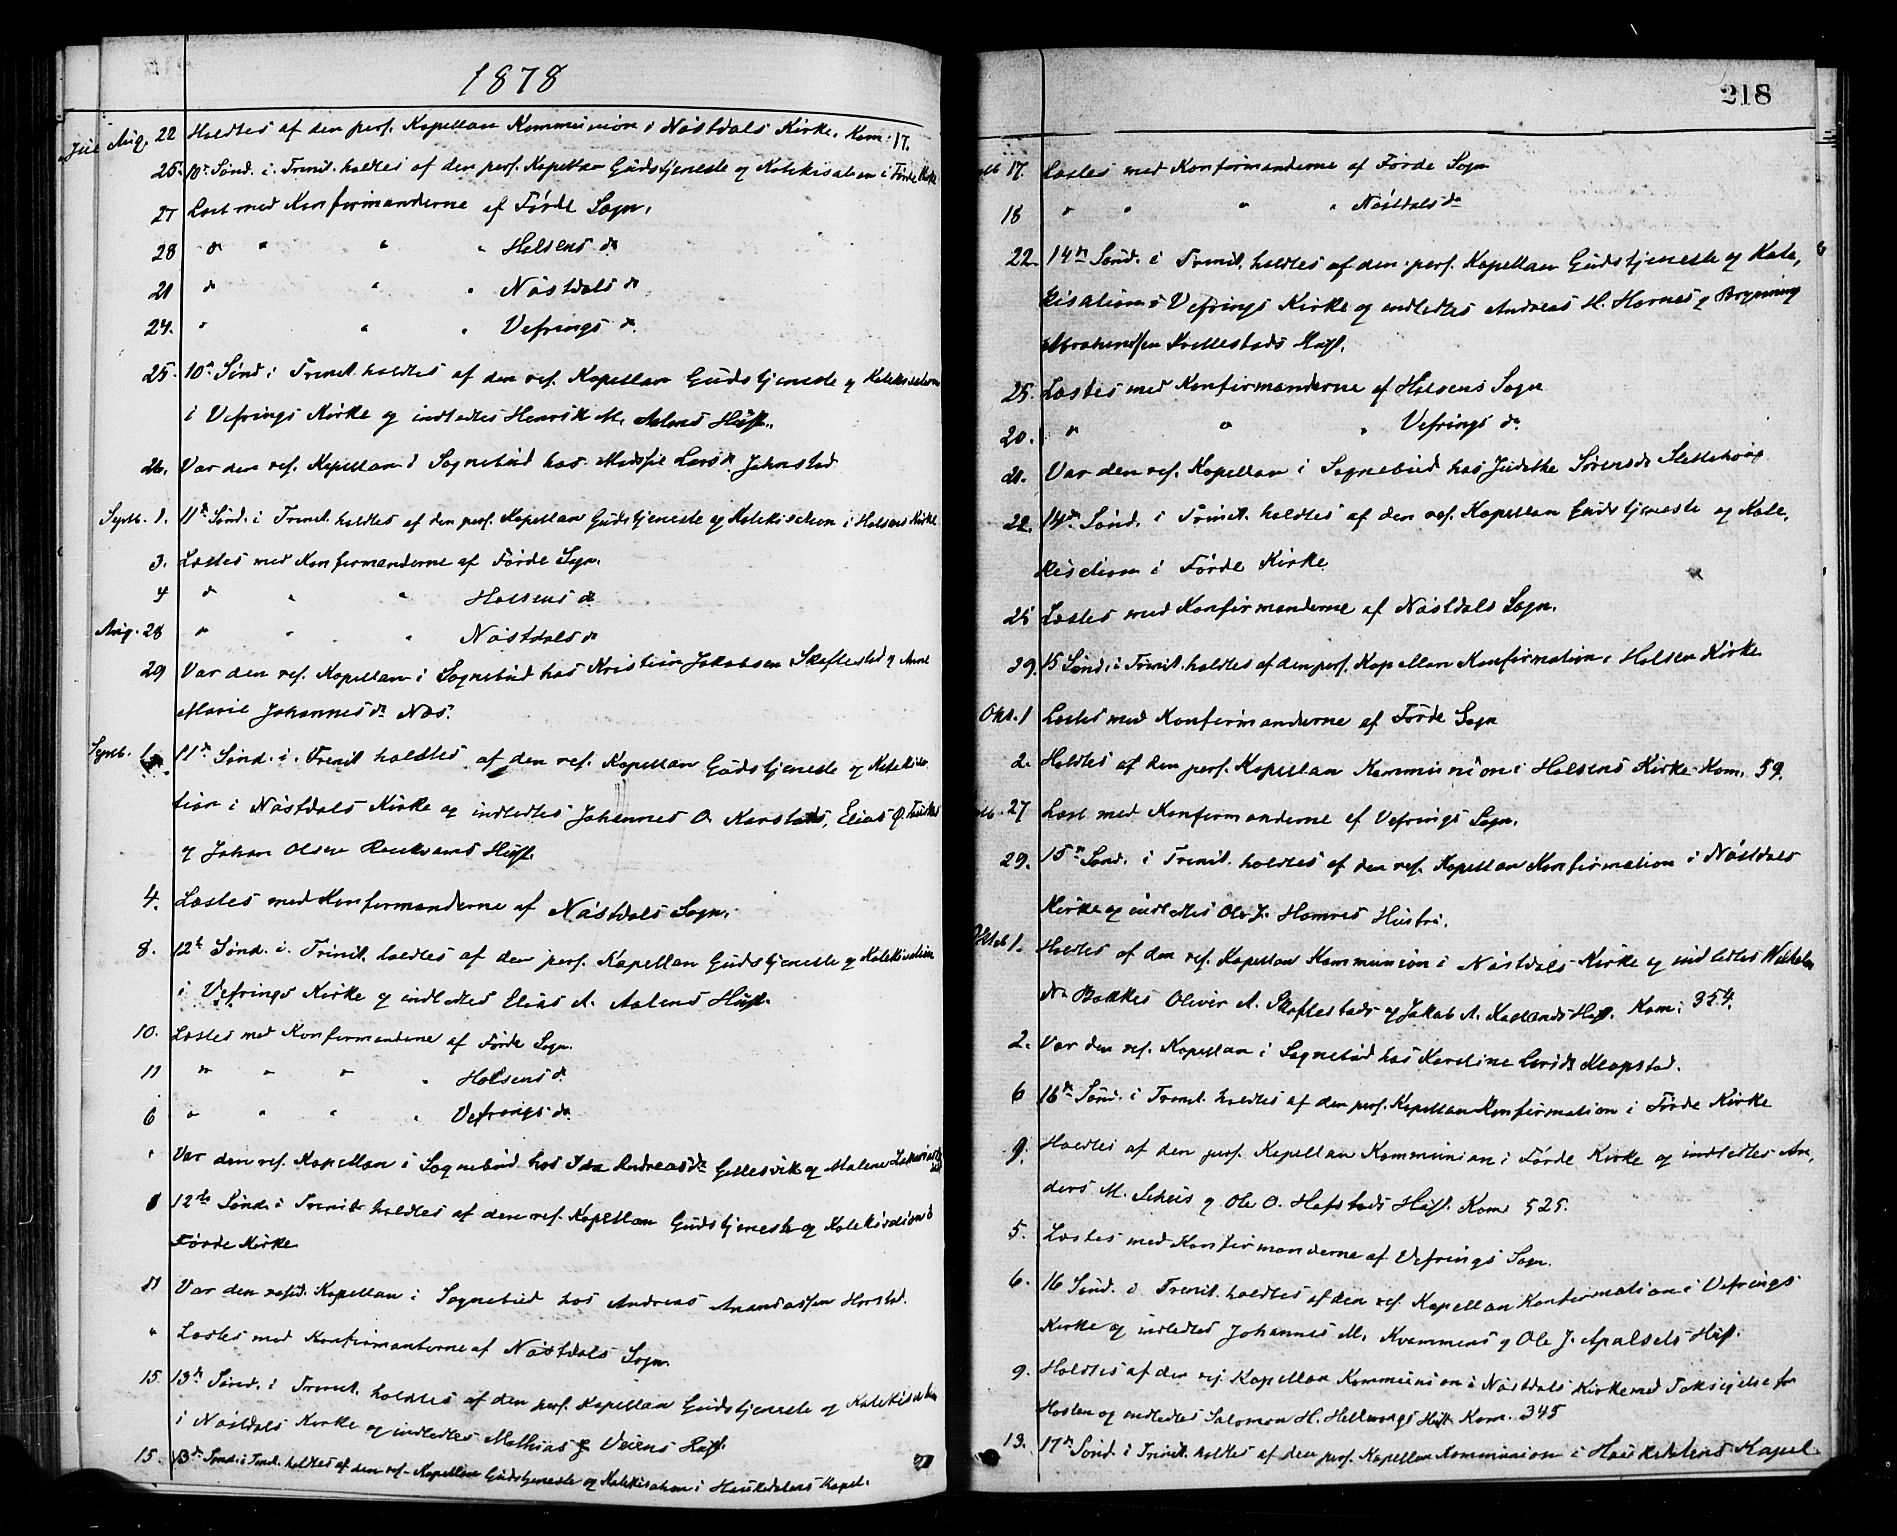 1878
Jul Aug. 22 Holdtes af den pers. Kapellan Kommunion i Nøstdals Kirke. Kom. 17.
25. 10de Sønd. i Trinit. holdtes af den pers. Kapellan Gudstjeneste og Katekisation i Førde Kirke
27 Læst med Konfirmanderne af Førde Sogn.
28 do " " " Holsens do
21 do " " Nøstdals do
24. " " " Vefrings do
25. 10de Sønd. i Trinit. holdtes af den res. Kapellan Gudstjeneste og Katekisation
i Vefrings Kirke og indledtes Henrik M. Aalens Hust.
26. Var den res. Kapellan i Sognebud hos Larsdr. Jahnstad
Septb. 1. 11te Sønd. i Trinit. holdtes af den pers. Kapellan Gudstjeneste og Katekisation i Holsens Kirke
3. Læstes med Konfirmanderne af Førde Sogn.
4 do " " Holsens do
Aug. 28 " " " Nøstdals do
29 Var den res. Kapellan i Sognebud hos Kristian Jakobsen Skeflestad og Anne
Marie Johannesdr. Næs.
Septb. 1 11te Sønd. i Trinit holdtes af den res. Kapellan Gudstjeneste og Katekisa
tion i Nøstdals Kirke og indledtes Johannes O. Karstads, Elias Ø.
og Johan Olsen Hust.
4. Læstes med Konfirmanderne af Nøstdals Sogn.
8. 12te Sønd. i Trinit. holdtes af den pers. Kapellan Gudstjeneste og Katekisation
i Vefrings Kirke og indledtes Elias A. Aalens Hust.
10. Læstes med Konfirmanderne af Førde Sogn.
11 " " " " Holsens do
6 " " " " Vefrings do
" Var den res. Kapellan i Sognebud hos Ida Andreasdr. Gellesvik og Malene
8 12te Sønd. i Trinit holdtes af den res. Kapellan Gudstjeneste og Katekisation i
Førde Kirke
11 Var den resid. Kapellan i Sognebud hos Andreas Horstad.
" Læstes med Konfirmanterne af Nøstdals Sogn.
15. 13de Sønd. i Trinit. holdtes af den pers. Kapellan Gudstjeneste og Katekisation
i Nøstdals Kirke og indledtes Mathias Veiens Hust.
15. 13de Sønd. i Trinit. holdtes af den res. Kapellan Gudstjeneste og Katekisation i Haukedalens Kapel.
218
17. Læstes med Konfirmanderne af Førde Sogn
18 " " " " Nøstdals do
22. 14de Sønd. i Trinit. holdtes af den pers. Kapellan Gudstjeneste og Kate,
kisation i Vefrings Kirke og indledtes Andreas H. Hornes og Brynning
Abrahamsen Hust.
25. Læstes med Konfirmanderne af Holsens Sogn
20. " " " Vefrings do
21. Var den res. Kapellan i Sognebud hos Judithe Sørensdr.
22. 14de Sønd. i Trinit. holdtes af den res. Kapellan Gudstjeneste og Kate,
kisation i Førde Kirke
25 Læstes med Konfirmanderne af Nøstdals Sogn.
29. 15 Sønd. i Trinit. holdtes af den pers. Kapellan Konfirmation i Holsen Kirke
Okt. 1 Læstes med Konfirmanderne af Førde Sogn
2. Holdtes af den pers. Kapellan Kommunion i Holsens Kirke Kom. 59.
27 Læst med Konfirmanderne af Vefrings Sogn.
29. 15de Sønd. i Trinit. holdtes af den res. Kapellan Konfirmation i Nøstdals
Kirke og indledtes Ole J. Hamres Hustru.
Oktob 1. Holdtes af den res. Kapellan Kommunion i Nøstdals Kirke og indledtes Wilhelm
Bakkes Oliver A. Skeflestads og Jakob A. Hust. Kom. 354.
2. Var den res. Kapellan i Sognebud hos Karoline Klopstad.
6 16de Sønd. i Trinit. holdtes af den pers. Kapellan Konfirmation i Førde Kirke
9. Holdtes af den pers. Kapellan Kommunion i Førde Kirke og indledtes An,
ders M. og Ole O. Hafstads Hust. Kom. 525.
5. Læstes med Konfirmanderne af Vefrings Sogn.
6. 16 Sønd. i Trinit. holdtes af den res. Kapellan Konfirmation i Vefrings
Kirke og indledtes Johannes M. Kvammens og Ole J. Apalsets Hust.
9. Holdtes af den res. Kapellan Kommunion i Nøstdals Kirke med Taksigelse for
Høsten og indledtes Salomon H. Hellevangs Hust Kom. 345
13. 17de Sønd. i Trinit. holdtes af den pers. Kapellan Kommunion i Haukedalens Kapel